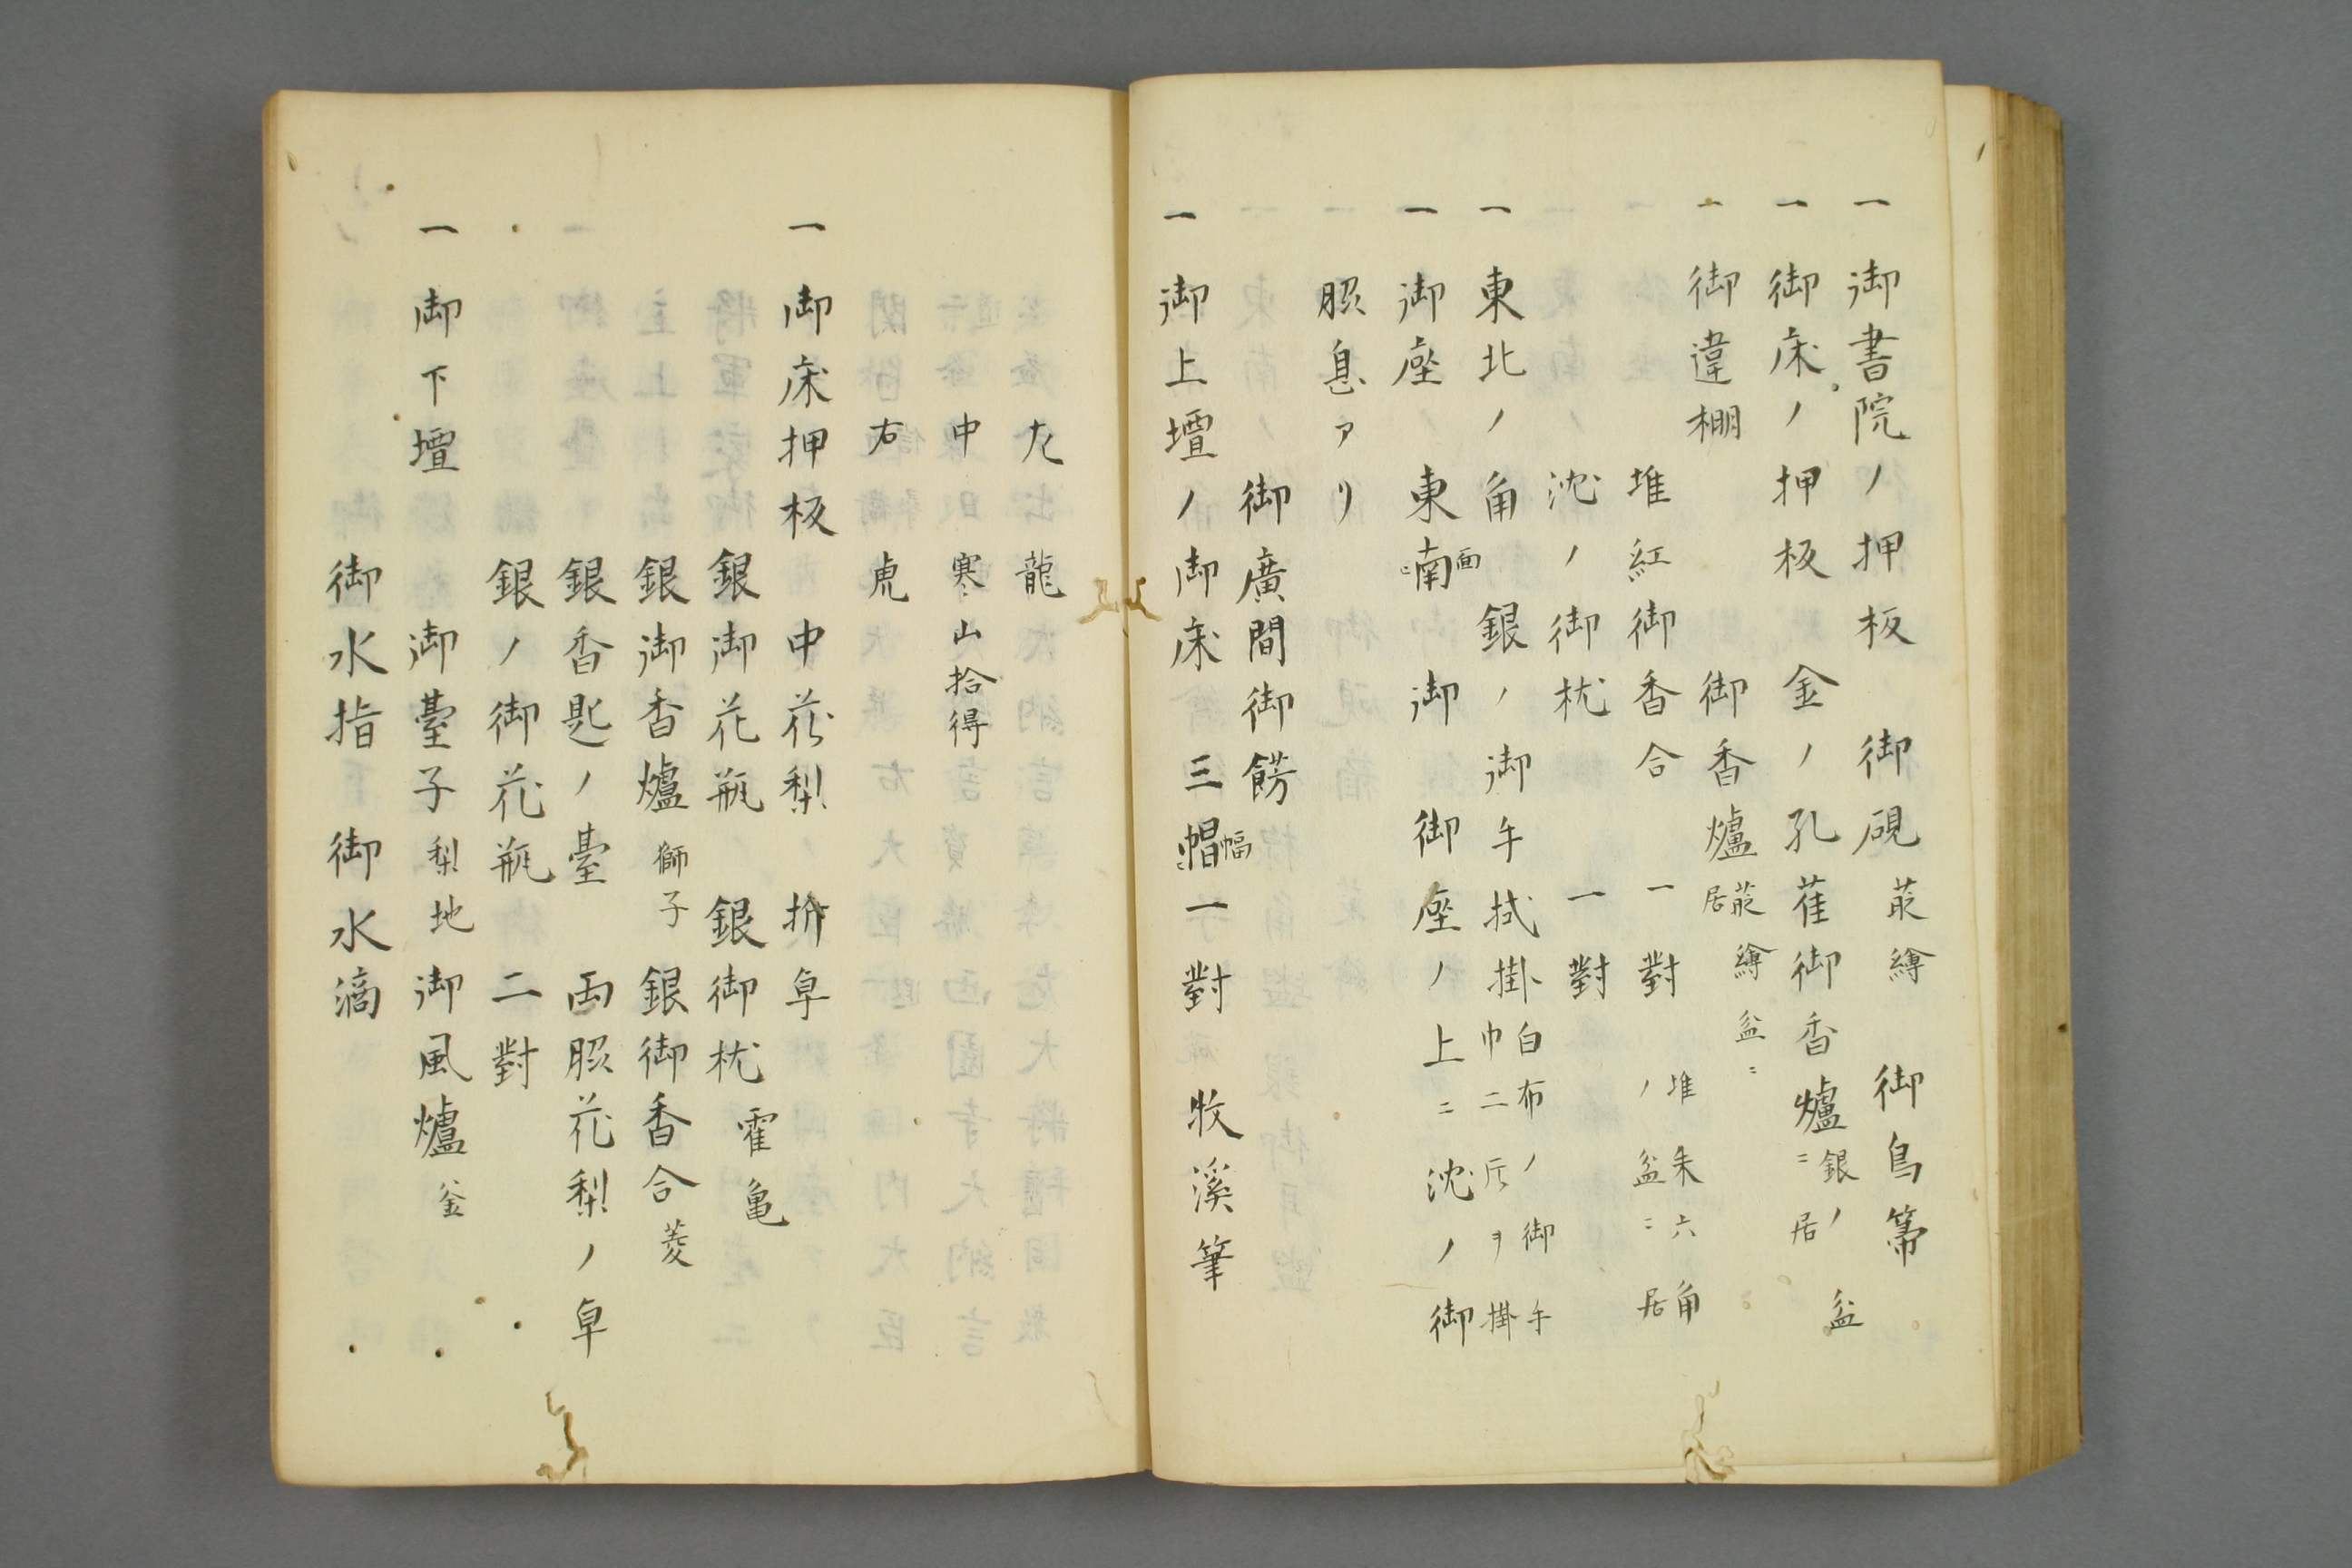 一御書院ノ押板　御硯　菔縛　御鳥箒
一御床ノ押板　金ノ孔萑御香爐ニ銀ノ盆居
一御違棚　御香爐菔縛盆ニ居
堆紅御香合　一對　堆朱六角ノ盆ニ居
沈ノ御枕　一對
一東北ノ角　銀ノ御手拭掛　白布ノ御手巾二ヲ掛
一御座　東南面　御　御座ノ上ニ沈ノ御
脇息アリ
御廣間御餝
一御上壇ノ御床　三帽幅一對　牧溪筆
尢　龍
中　寒山拾得
右　虎
一御床押板　中花梨ノ折卓
銀御花瓶　銀御枕　霍亀
銀御香爐　獅子　銀御香合　菱
銀香匙ノ臺　両脇花梨ノ卓
銀ノ御花瓶　二對
一御下壇　御臺子　梨地　御風爐　釜
御水指　御水滴